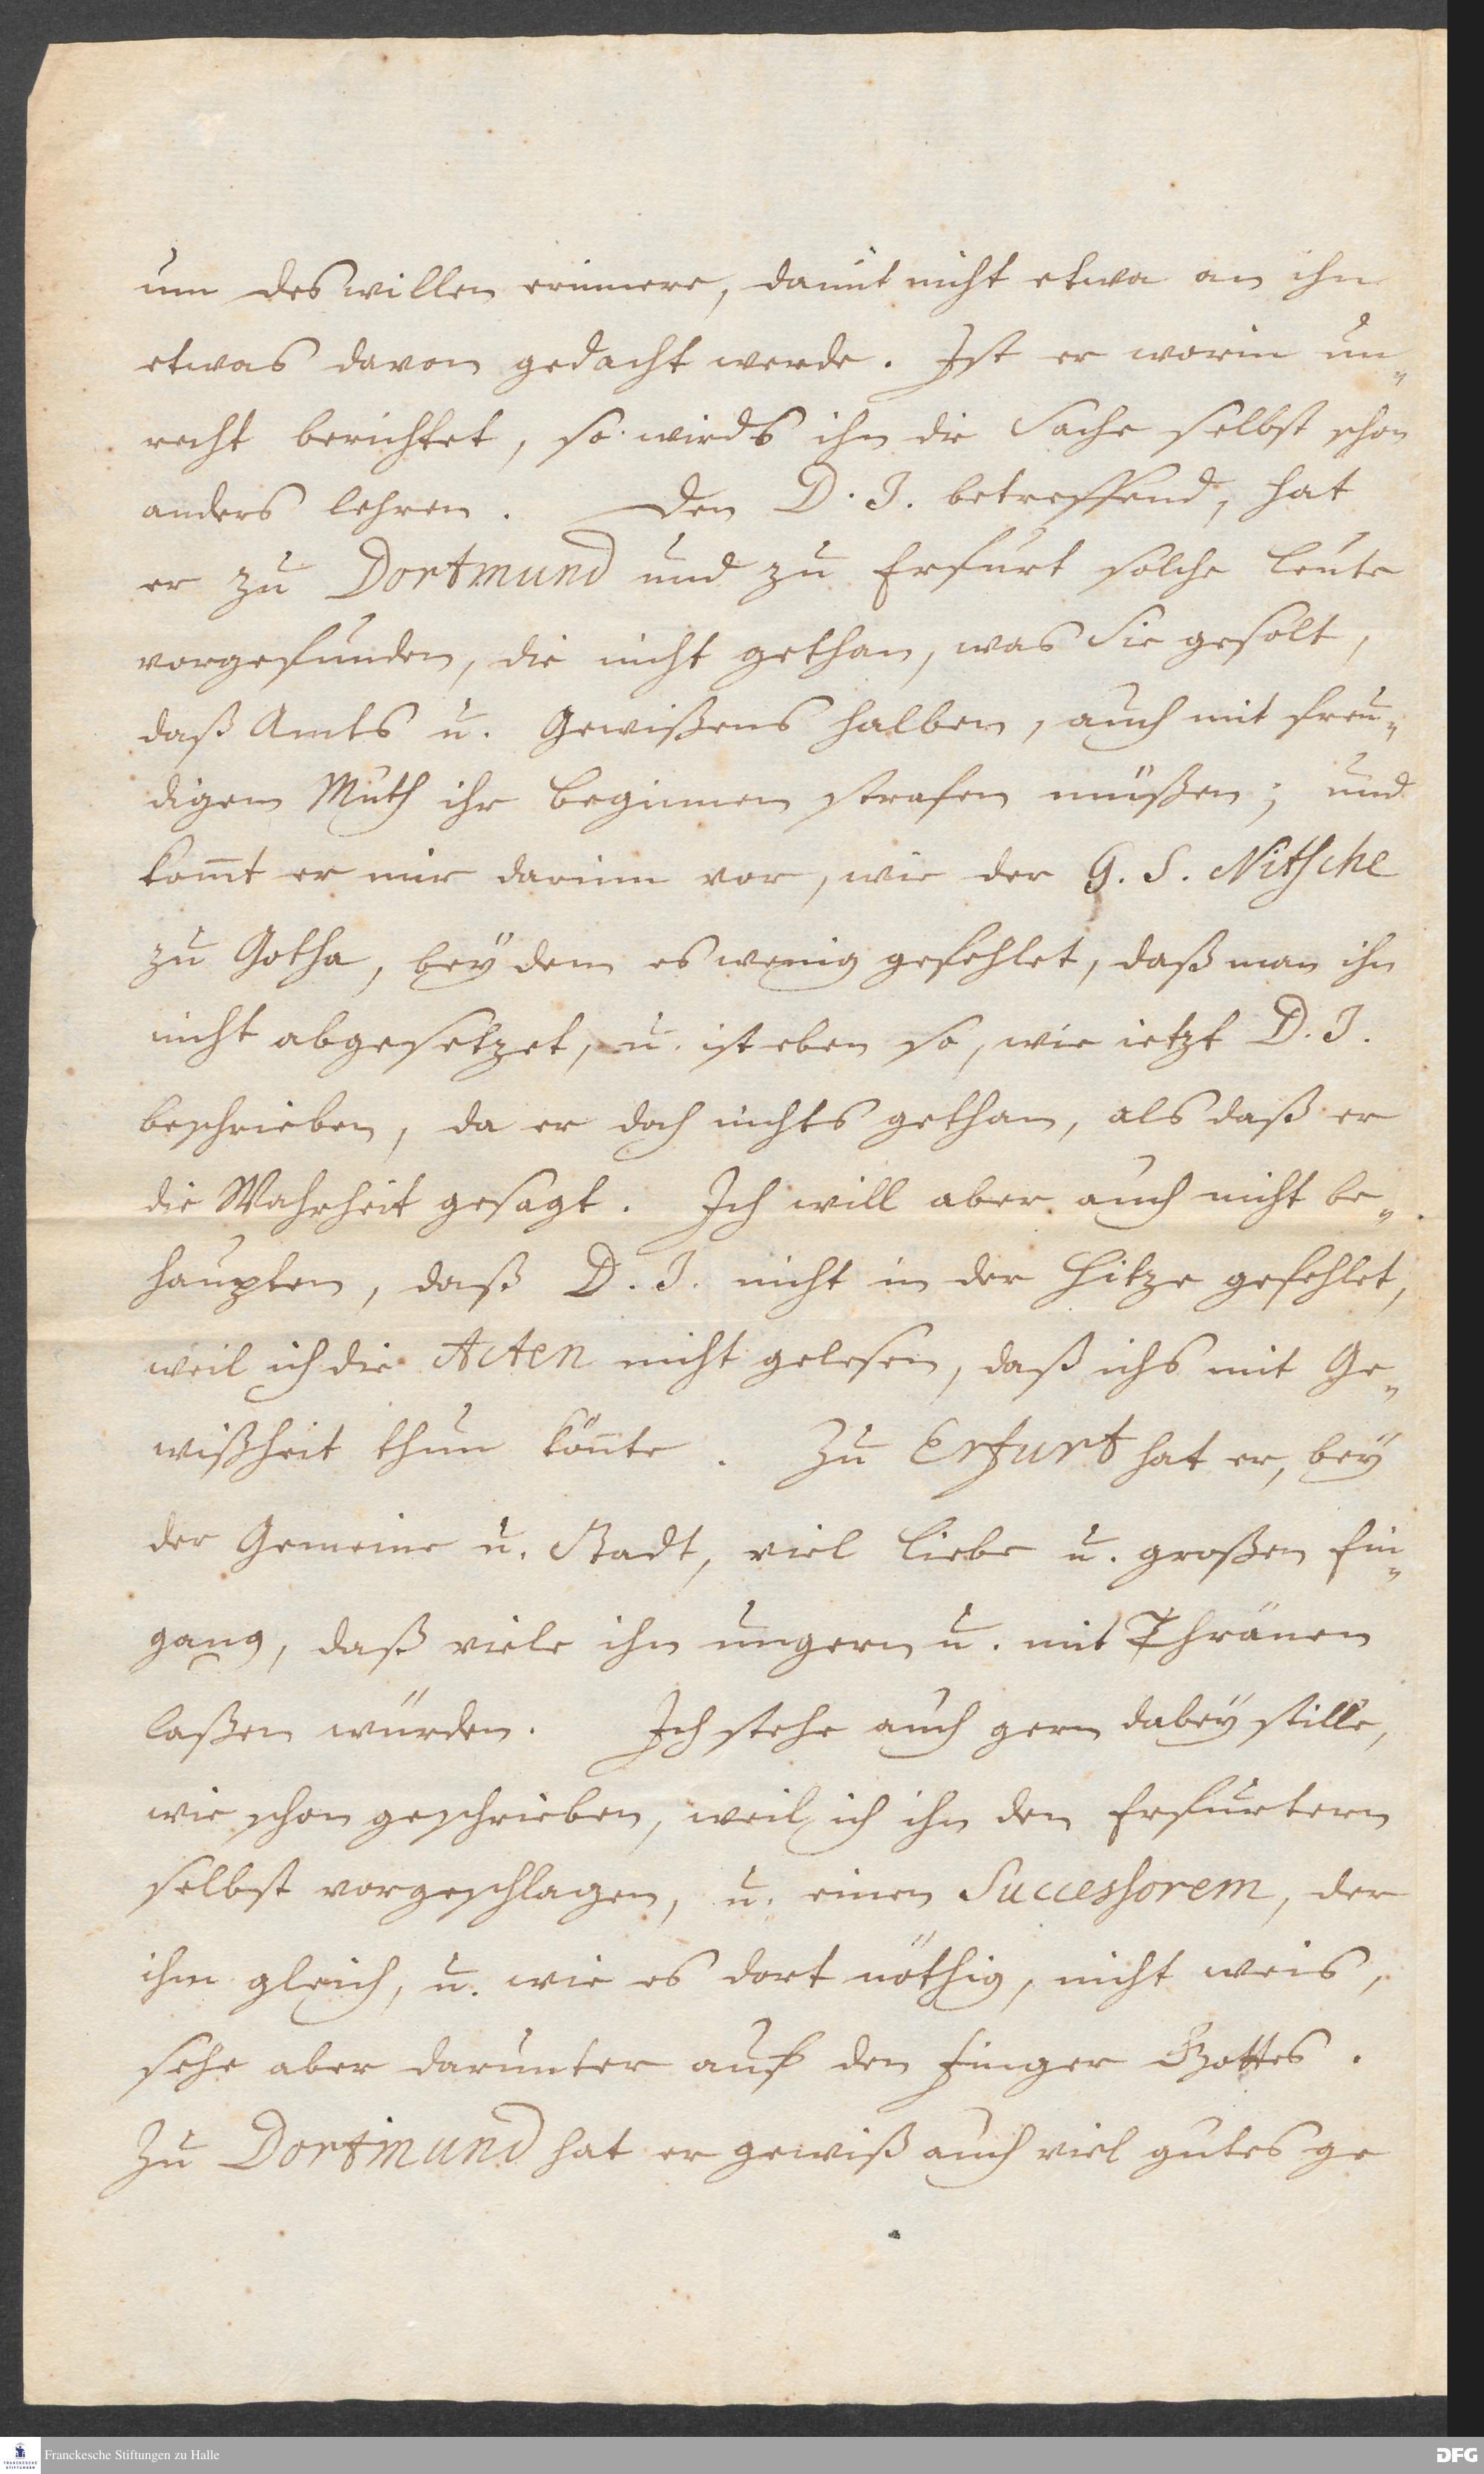 um deswillen erinnere, damit nicht etwa an ihn
etwas davon gedacht werde. Ist er worin un„
recht berichtet, so wirds ihn die Sache selbst schon
anders lehren. Den D. J. betreffend, hat
er zu Dortmund und zu Erfurt solche Leute
vorgefunden, die nicht gethan, was Sie gesolt,
daß Amts u. Gewißens halben, auch mit freu„
digem Muth ihr Beginnen strafen müßen; und
kom̅t er mir darinn vor, wie der G. S. Nitsche
zu Gotha, bey dem es wenig gefehlet, daß man ihn
nicht abgesetzet, u. ist eben so, wie ietzt D. J.
beschrieben, da er doch nichts gethan, als daß er
die Wahrheit gesagt. Ich will aber auch nicht be„
haupten, daß D. J. nicht in der Hitze gefehlet,
weil ich die Acten nicht gelesen, daß ichs mit Ge„
wißheit thun kön̅te. Zu Erfurt hat er, bey
der Gemeine u. Stadt, viel Liebe u. großen Ein„
gang, daß viele ihn ungern u. mit Thränen
laßen würden. Ich stehe auch gern dabey stille,
wie schon geschrieben, weil ich ihn den Erfurtern
selbst vorgeschlagen, u. einen Successorem, der
ihm gleich, u. wie es dort nöthig, nicht weis,
sehe aber darunter auf den Finger Gottes.
Zu Dortmund hat er gewiß auch viel gutes ge
Franckesche Stiftungen zu Halle
DFG